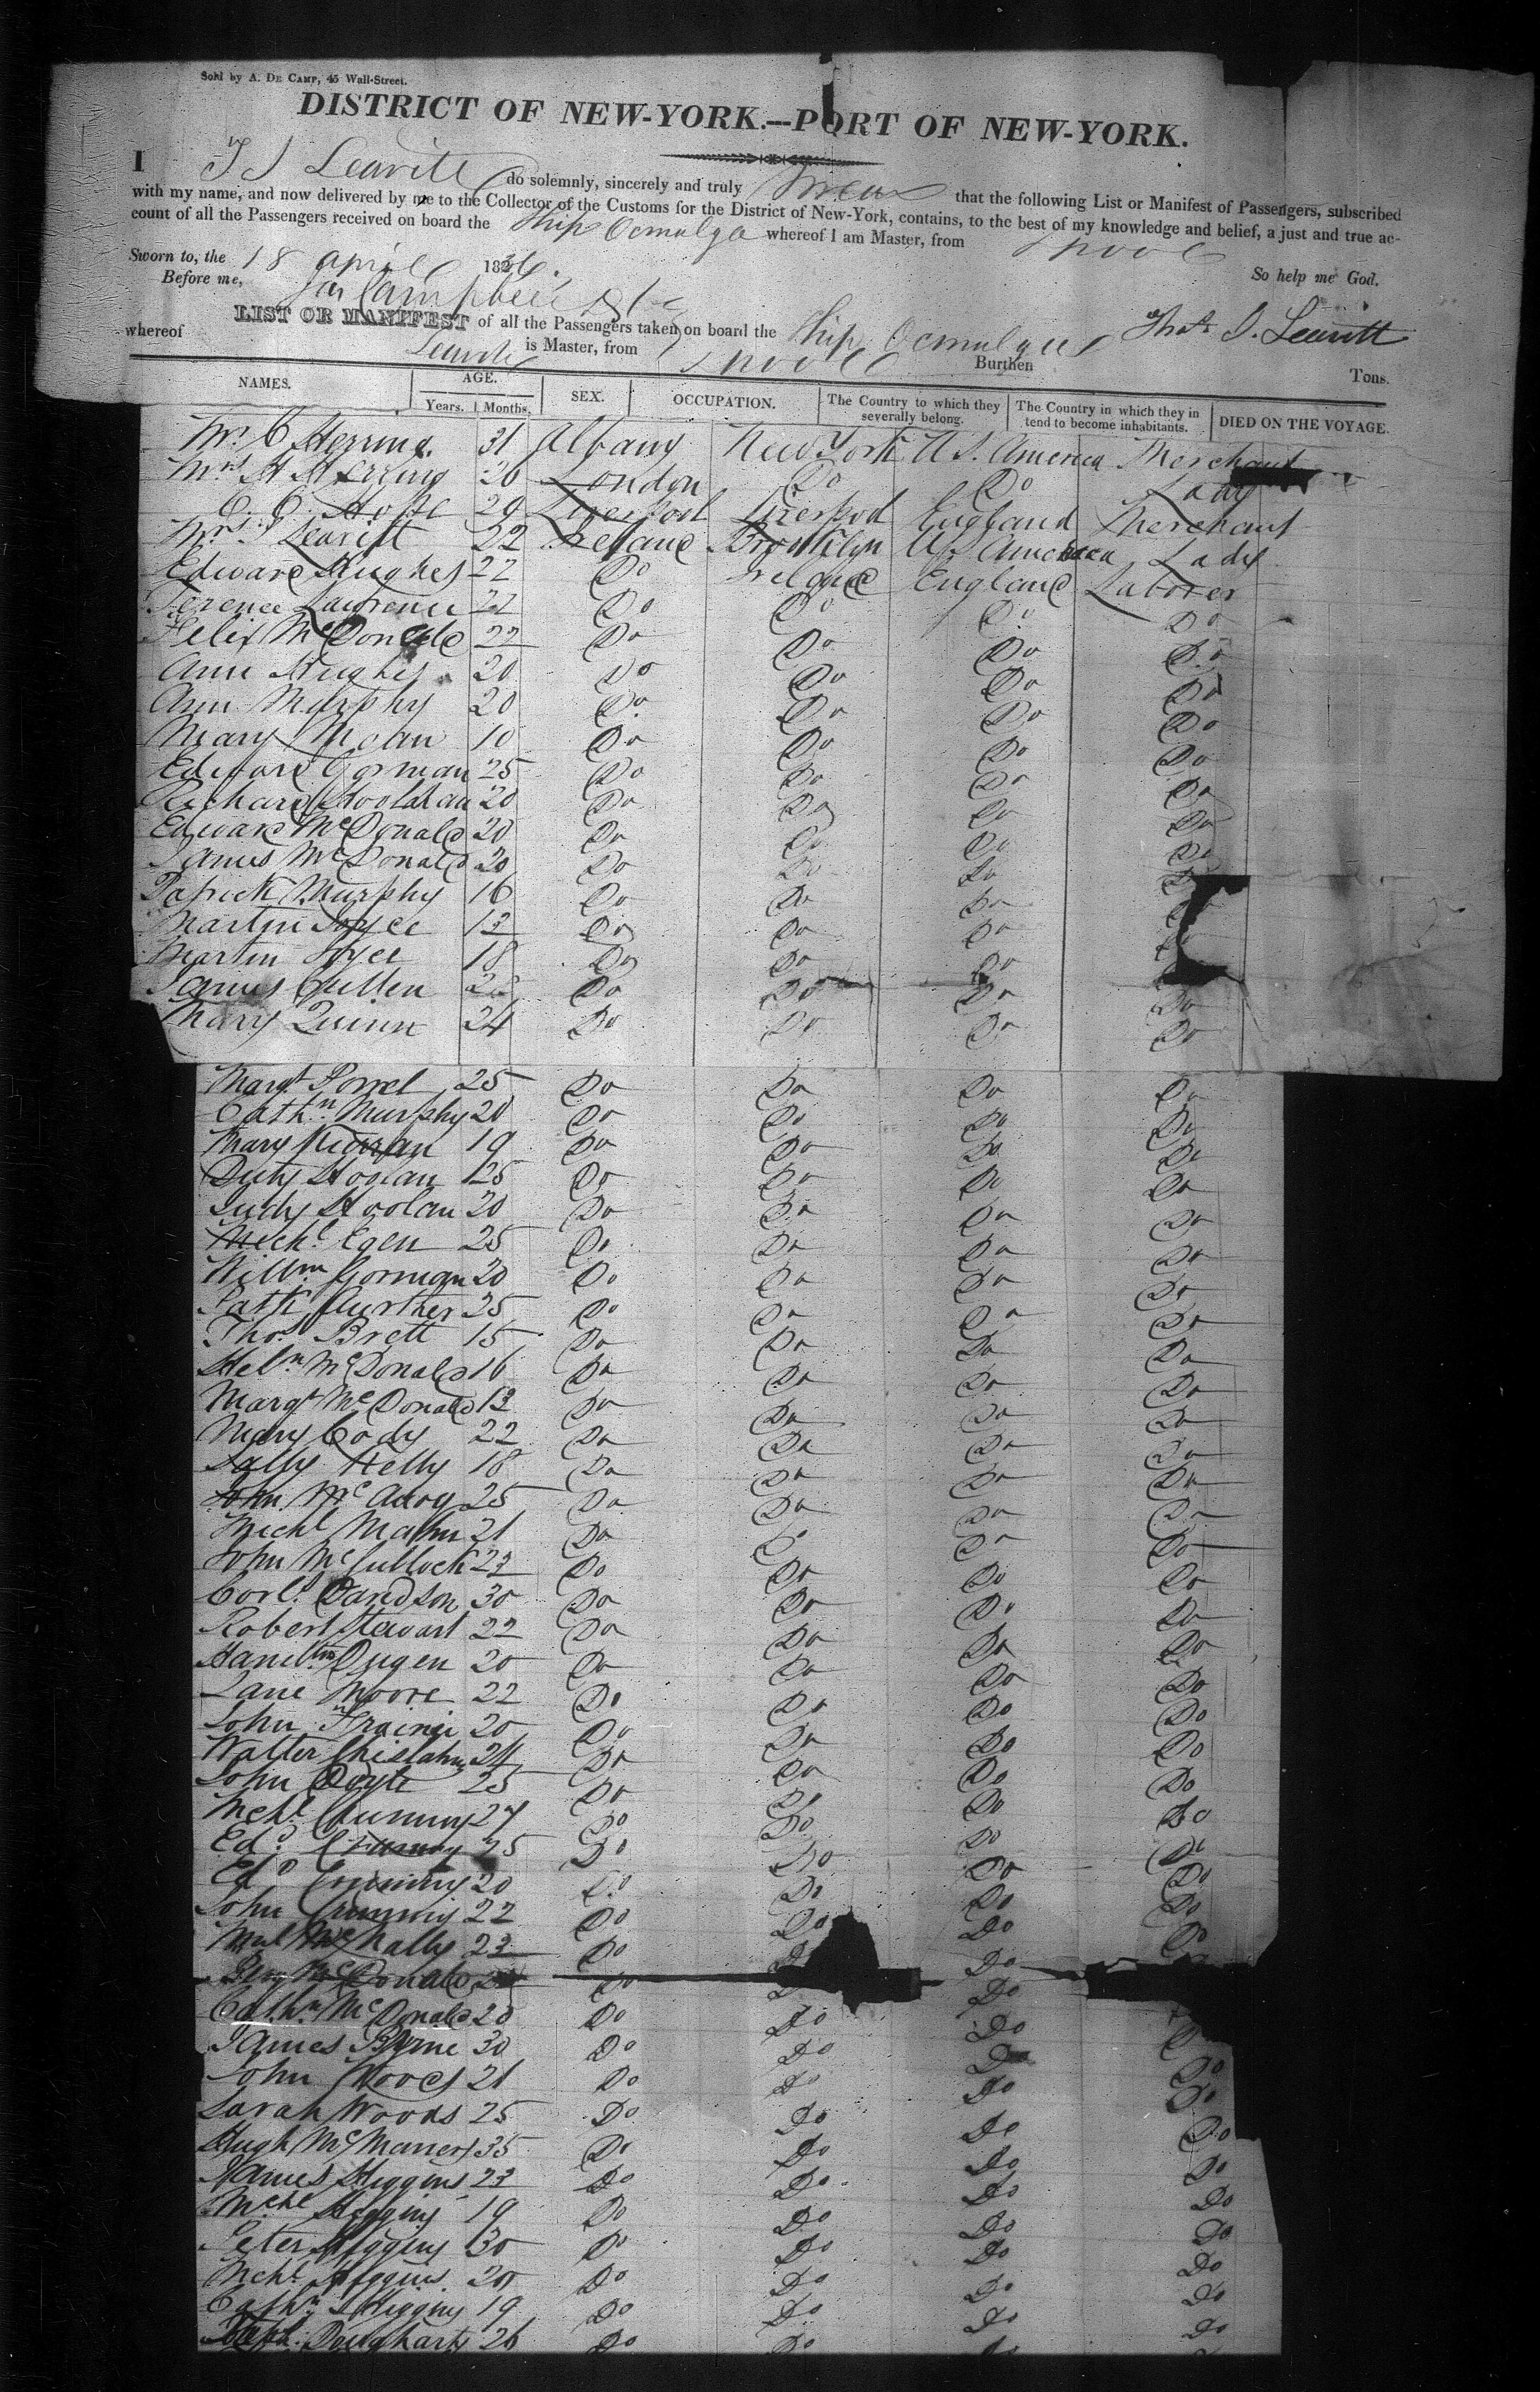 Sold by A. DE CAMP, 45 Wall-Street.
DISTRICT OF NEW-YORK.—PORT OF NEW-YORK.
I T J Leavitt do solemnly, sincerely and truly Swear that the following List or Manifest of Passengers, subscribed
with my name, and now delivered by me to the Collector of the Customs for the District of New-York, contains, to the best of my knowledge and belief, a just and true ac-
count of all the Passengers received on board the Ship Ocmulgee whereof I am Master, from Lpool
Sworn to, the 18 april 1836. So help me God.
Before me, Jas Campbell
LIST OR MANIFEST of all the Passengers taken on board the Ship Ocmulgee Thos. J. Leavitt
whereof Leavitt is Master, from Lpool Burthen Tons.
NAMES. AGE. Years. Months. SEX. OCCUPATION. The Country to which they severally belong. The Country in which they in tend to become inhabitants. DIED ON THE VOYAGE.
Mr. C Herring. 31 Albany New York U S. America Merchant
Mrs. H Herring 26 London Do Do Lady
C. C. Hope 29 Liverpool Liverpool England Merchant
Mrs. J Leavitt 22 Ireland Brooklyn U S America Lady
Edward Hughes 22 Do Ireland England Laborer
Terence Lawrence 22 Do Do Do Do
Felix McDonald 22 Do Do Do Do
Ann Hughes 20 Do Do Do Do
Ann Murphy 20 Do Do Do Do
Mary 10 Do Do Do Do
Edward Gorman 25 Do Do Do Do
Richard Hoolahan 20 Do Do Do Do
Edward McDonald 20 Do Do Do Do
James McDonald 20 Do Do Do Do
Patrick Murphy 16 Do Do Do Do
Martin Joyce 13 Do Do Do
Martin Joyce 18 Do Do Do
James Cullen Do Do Do Do
Mary Quinn 24 Do Do Do Do
Margt 25 Do Do Do Do
Cathn. Murphy 20 Do Do Do Do
Mary Kiernan 19 Do Do Do Do
Hoolan 25 Do Do Do Do
Judy Hoolan 20 Do Do Do Do
Michl. Egen 25 Do Do Do Do
Willm. Gorman 20 Do Do Do Do
Patk 25 Do Do Do Do
Thos. Brett 15 Do Do Do Do
Heln. McDonald 16 Do Do Do Do
Margt McDonald 13 Do Do Do Do
Mary Cody 22 Do Do Do Do
Sally Kelly 18 Do Do Do Do
John McAvoy 25 Do Do Do Do
Michl Mahn 21 Do Do Do Do
John McCullock 23 Do Do Do Do
Davidson 30 Do Do Do Do
Robert Stewart 22 Do Do Do Do
Hamiltn Dugen 20 Do Do Do Do
Jane Moore 22 Do Do Do Do
John 20 Do Do Do Do
Walter 24 Do Do Do Do
John Doyle 25 Do Do Do Do
Michl. 27 Do Do Do Do
Edd. 25 Do Do Do Do
Edd 20 Do Do Do Do
John 22 Do Do Do Do
McNally 23 Do Do Do
McDonald Do Do
Cathn. McDonald 20 Do Do Do
James Byrne 30 Do Do Do Do
John Woods 21 Do Do Do Do
Sarah Woods 25 Do Do Do Do
Hugh McManers 35 Do Do Do Do
James Higgins 23 Do Do Do Do
Michl Higgins 19 Do Do Do Do
Peter Higgins 30 Do Do Do Do
Michl. Higgins 20 Do Do Do Do
Cathn Higgins 19 Do Do Do Do
Dougharty 26 Do Do Do Do